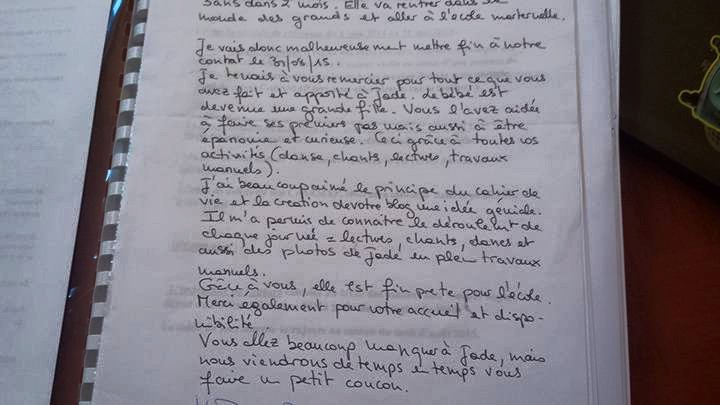 dans 2 mois. Elle va rentrer dans le
monde des grands et aller à l'école maternelle.
Je vais donc malheureusement mettre fin à notre
contrat le 31/08/15.
Je tenais à vous remercier pour tout ce que vous
avez fait et apporté à Jade. Le bébé est
devenue une grande fille. Vous l'avez aidée
à faire ses premiers pas mais aussi à être
épanouie et curieuse. Ceci grâce à toutes vos
activités (danse, chants, lectures, travaux
manuels).
J'ai beaucoup aimé le principe du cahier de
vie et la création de votre blog une idée géniale.
Il m'a permis de connaitre le déroulement de
chaque journée = lectures, chants, danses et
aussi des photos de Jade en plein travaux
manuels.
Grâce à vous, elle est fin prete pour l'école.
Merci également pour votre accueil et dispo-
nibilité
Vous allez beaucoup manquer à Jade, mais
nous viendrons de temps en temps vous
faire un petit coucou.